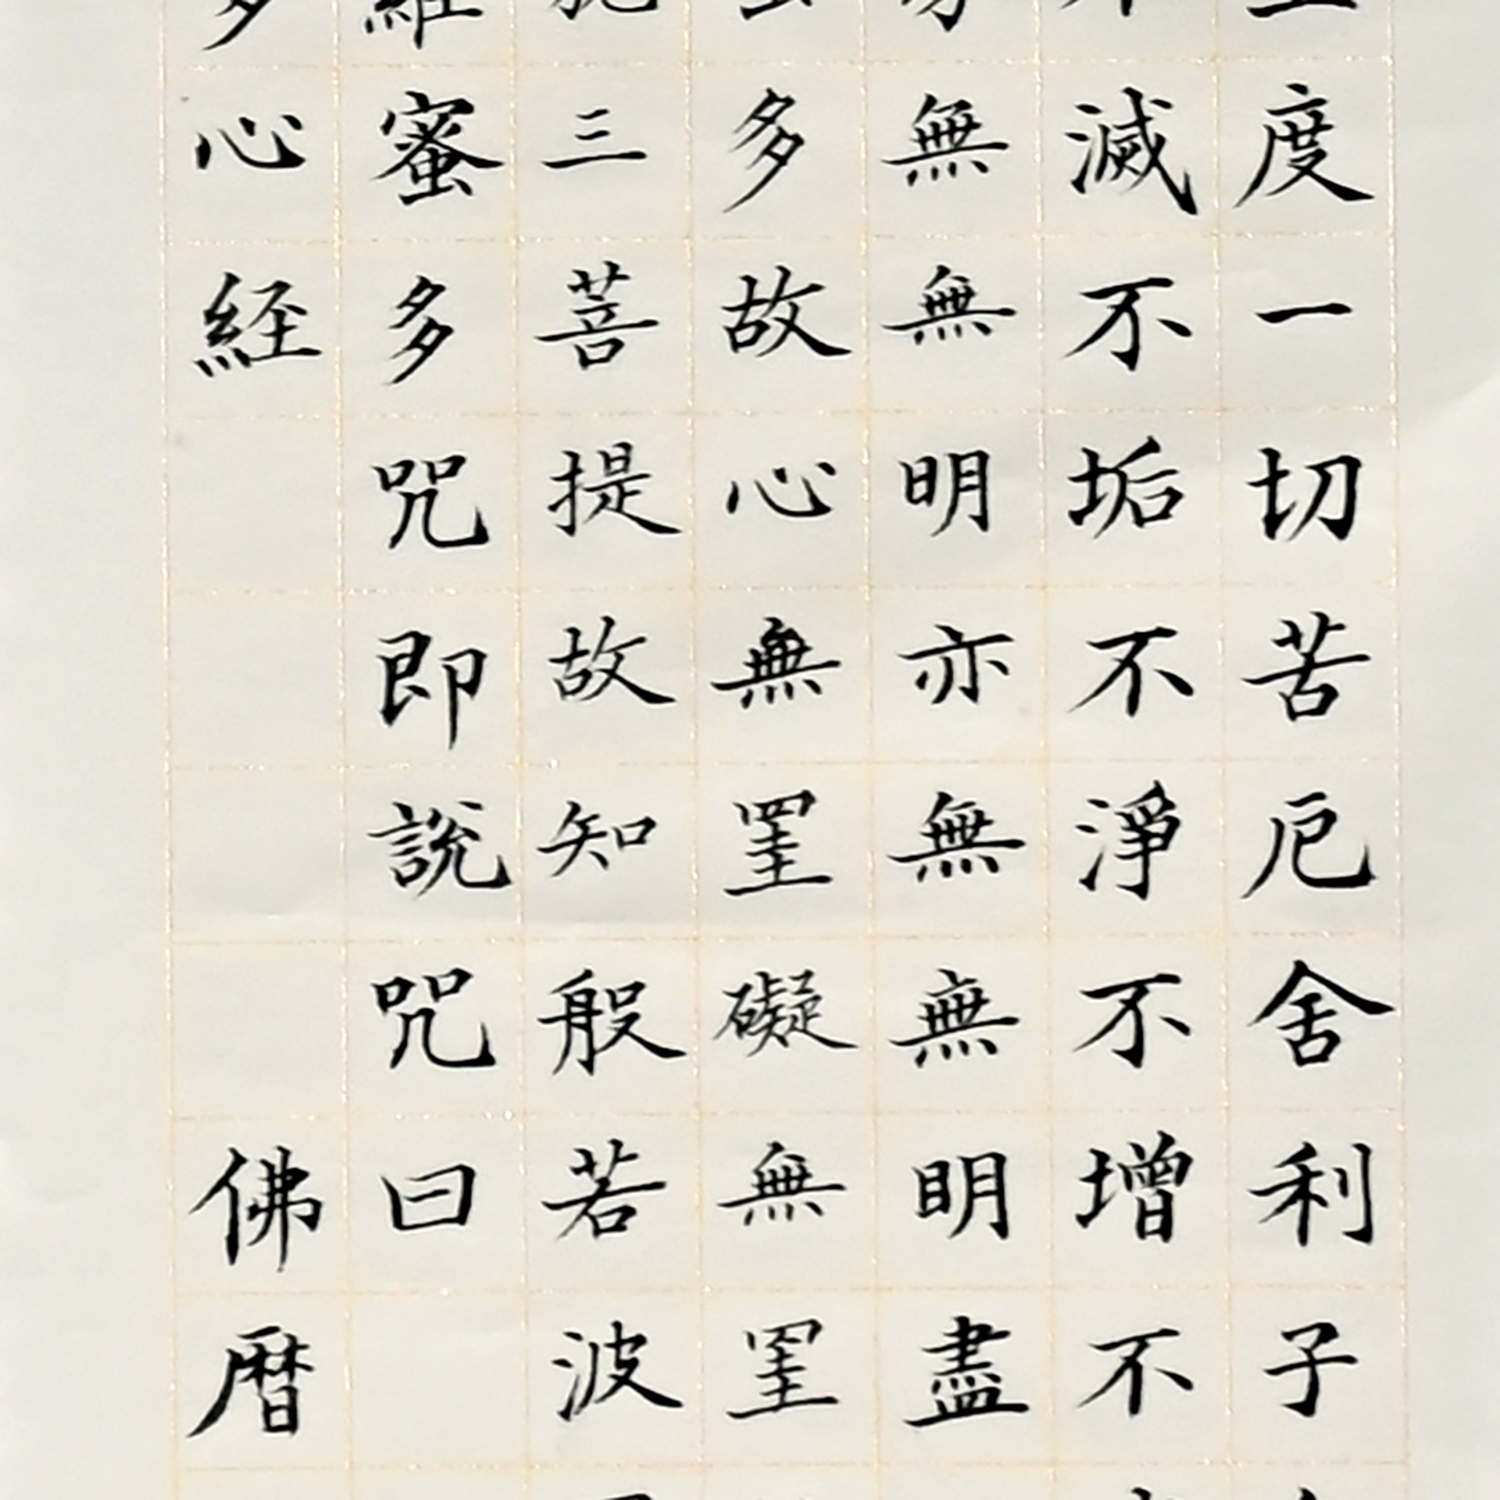 度一切苦厄舍利子
滅不垢不淨不增不
無無明亦無無明盡
多故心無罣礙無罣
三菩提故知般若波
蜜多咒即說咒曰
心経 佛暦